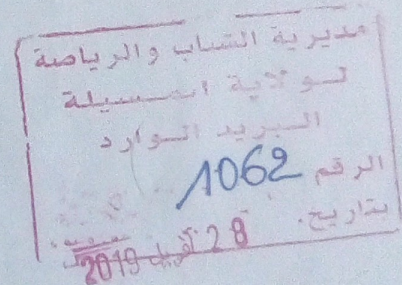 مديرية الشباب والرياضة
لولاية المسيلة
البريد الوارد
الرقم 1062
بتاريخ. 28 أفريل 2019